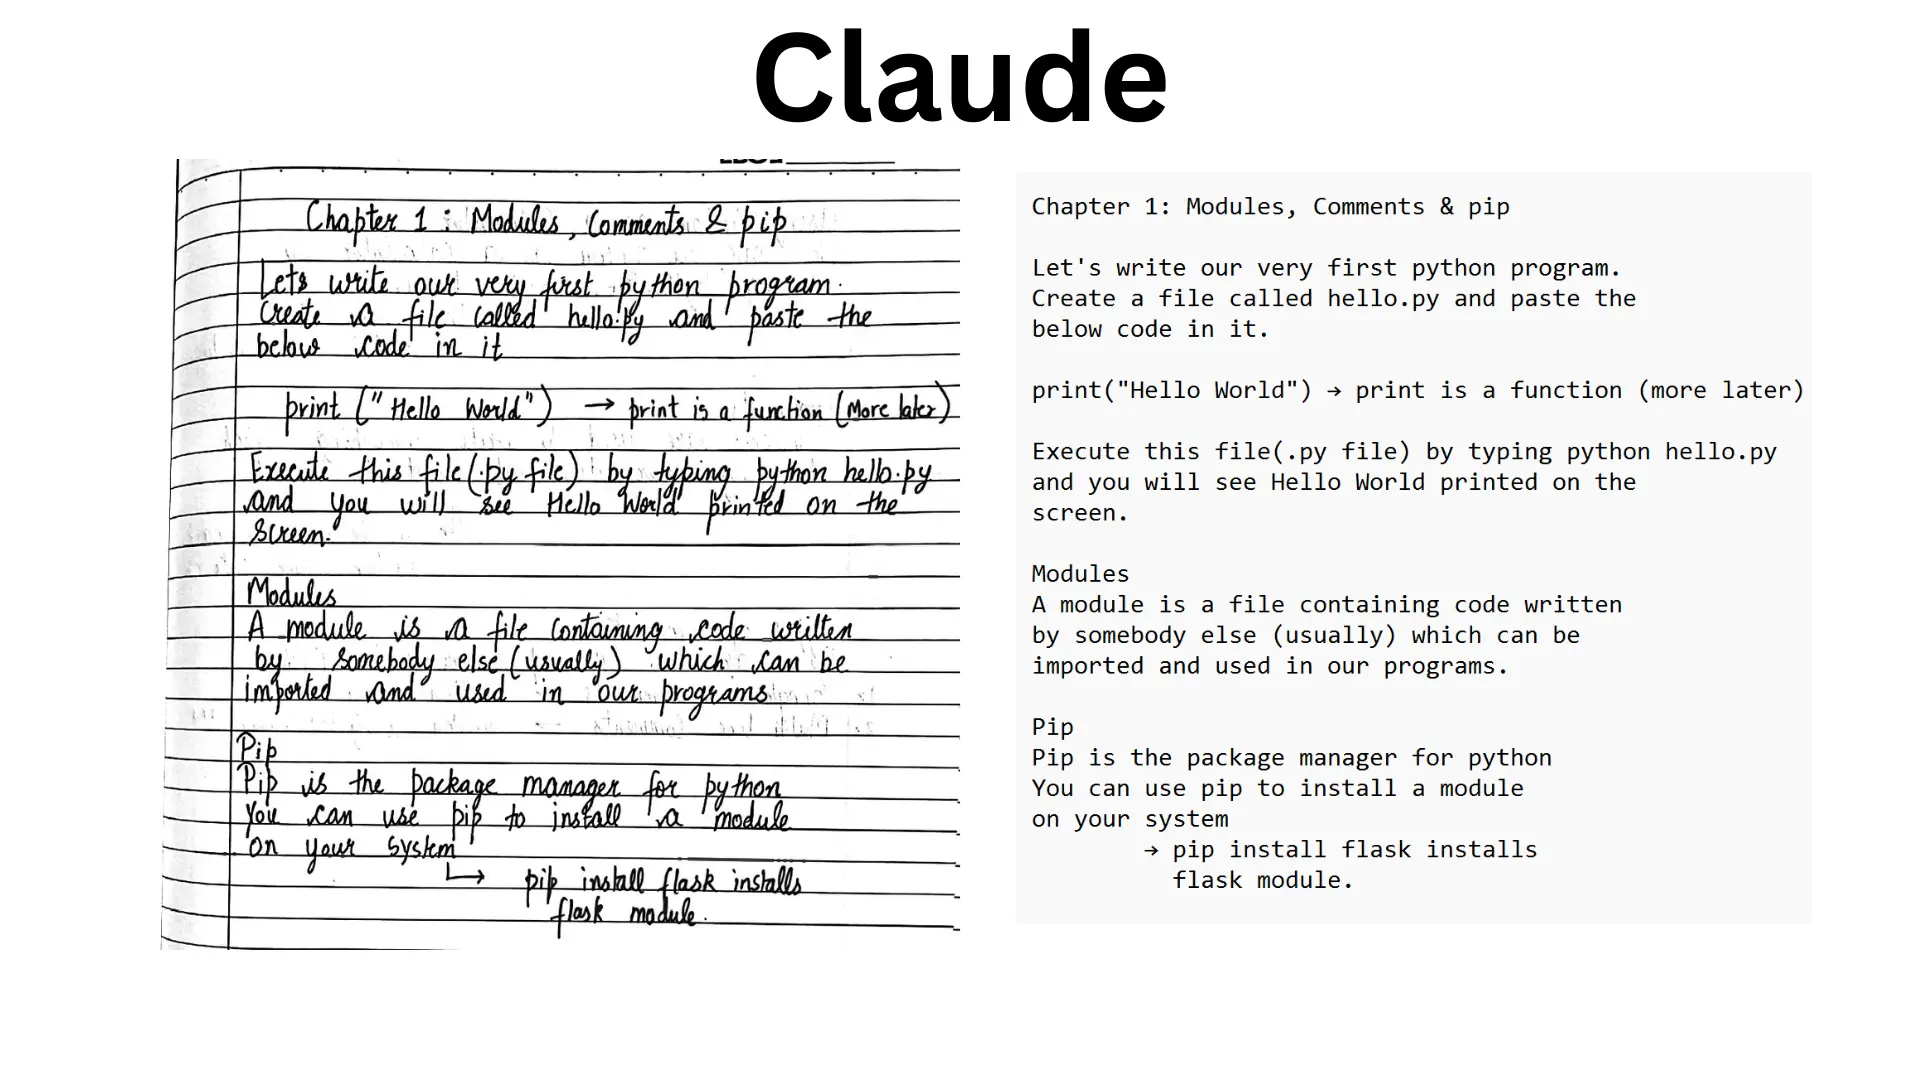 Claude
Chapter 1 : Modules, Comments & pip
Lets write our very first python program.
Create a file called hello.py and paste the
below code in it
print ("Hello World") → print is a function (More later)
Execute this file (.py file) by typing python hello.py
and you will see Hello World printed on the
Screen.
Modules
A module is a file containing code written
by somebody else (usually) which can be
imported and used in our programs
Pip
Pip is the package manager for python
You can use pip to install a module
on your system
↳ pip install flask installs
flask module.
Chapter 1: Modules, Comments & pip
Let's write our very first python program.
Create a file called hello.py and paste the
below code in it.
print("Hello World") → print is a function (more later)
Execute this file(.py file) by typing python hello.py
and you will see Hello World printed on the
screen.
Modules
A module is a file containing code written
by somebody else (usually) which can be
imported and used in our programs.
Pip
Pip is the package manager for python
You can use pip to install a module
on your system
→ pip install flask installs
flask module.